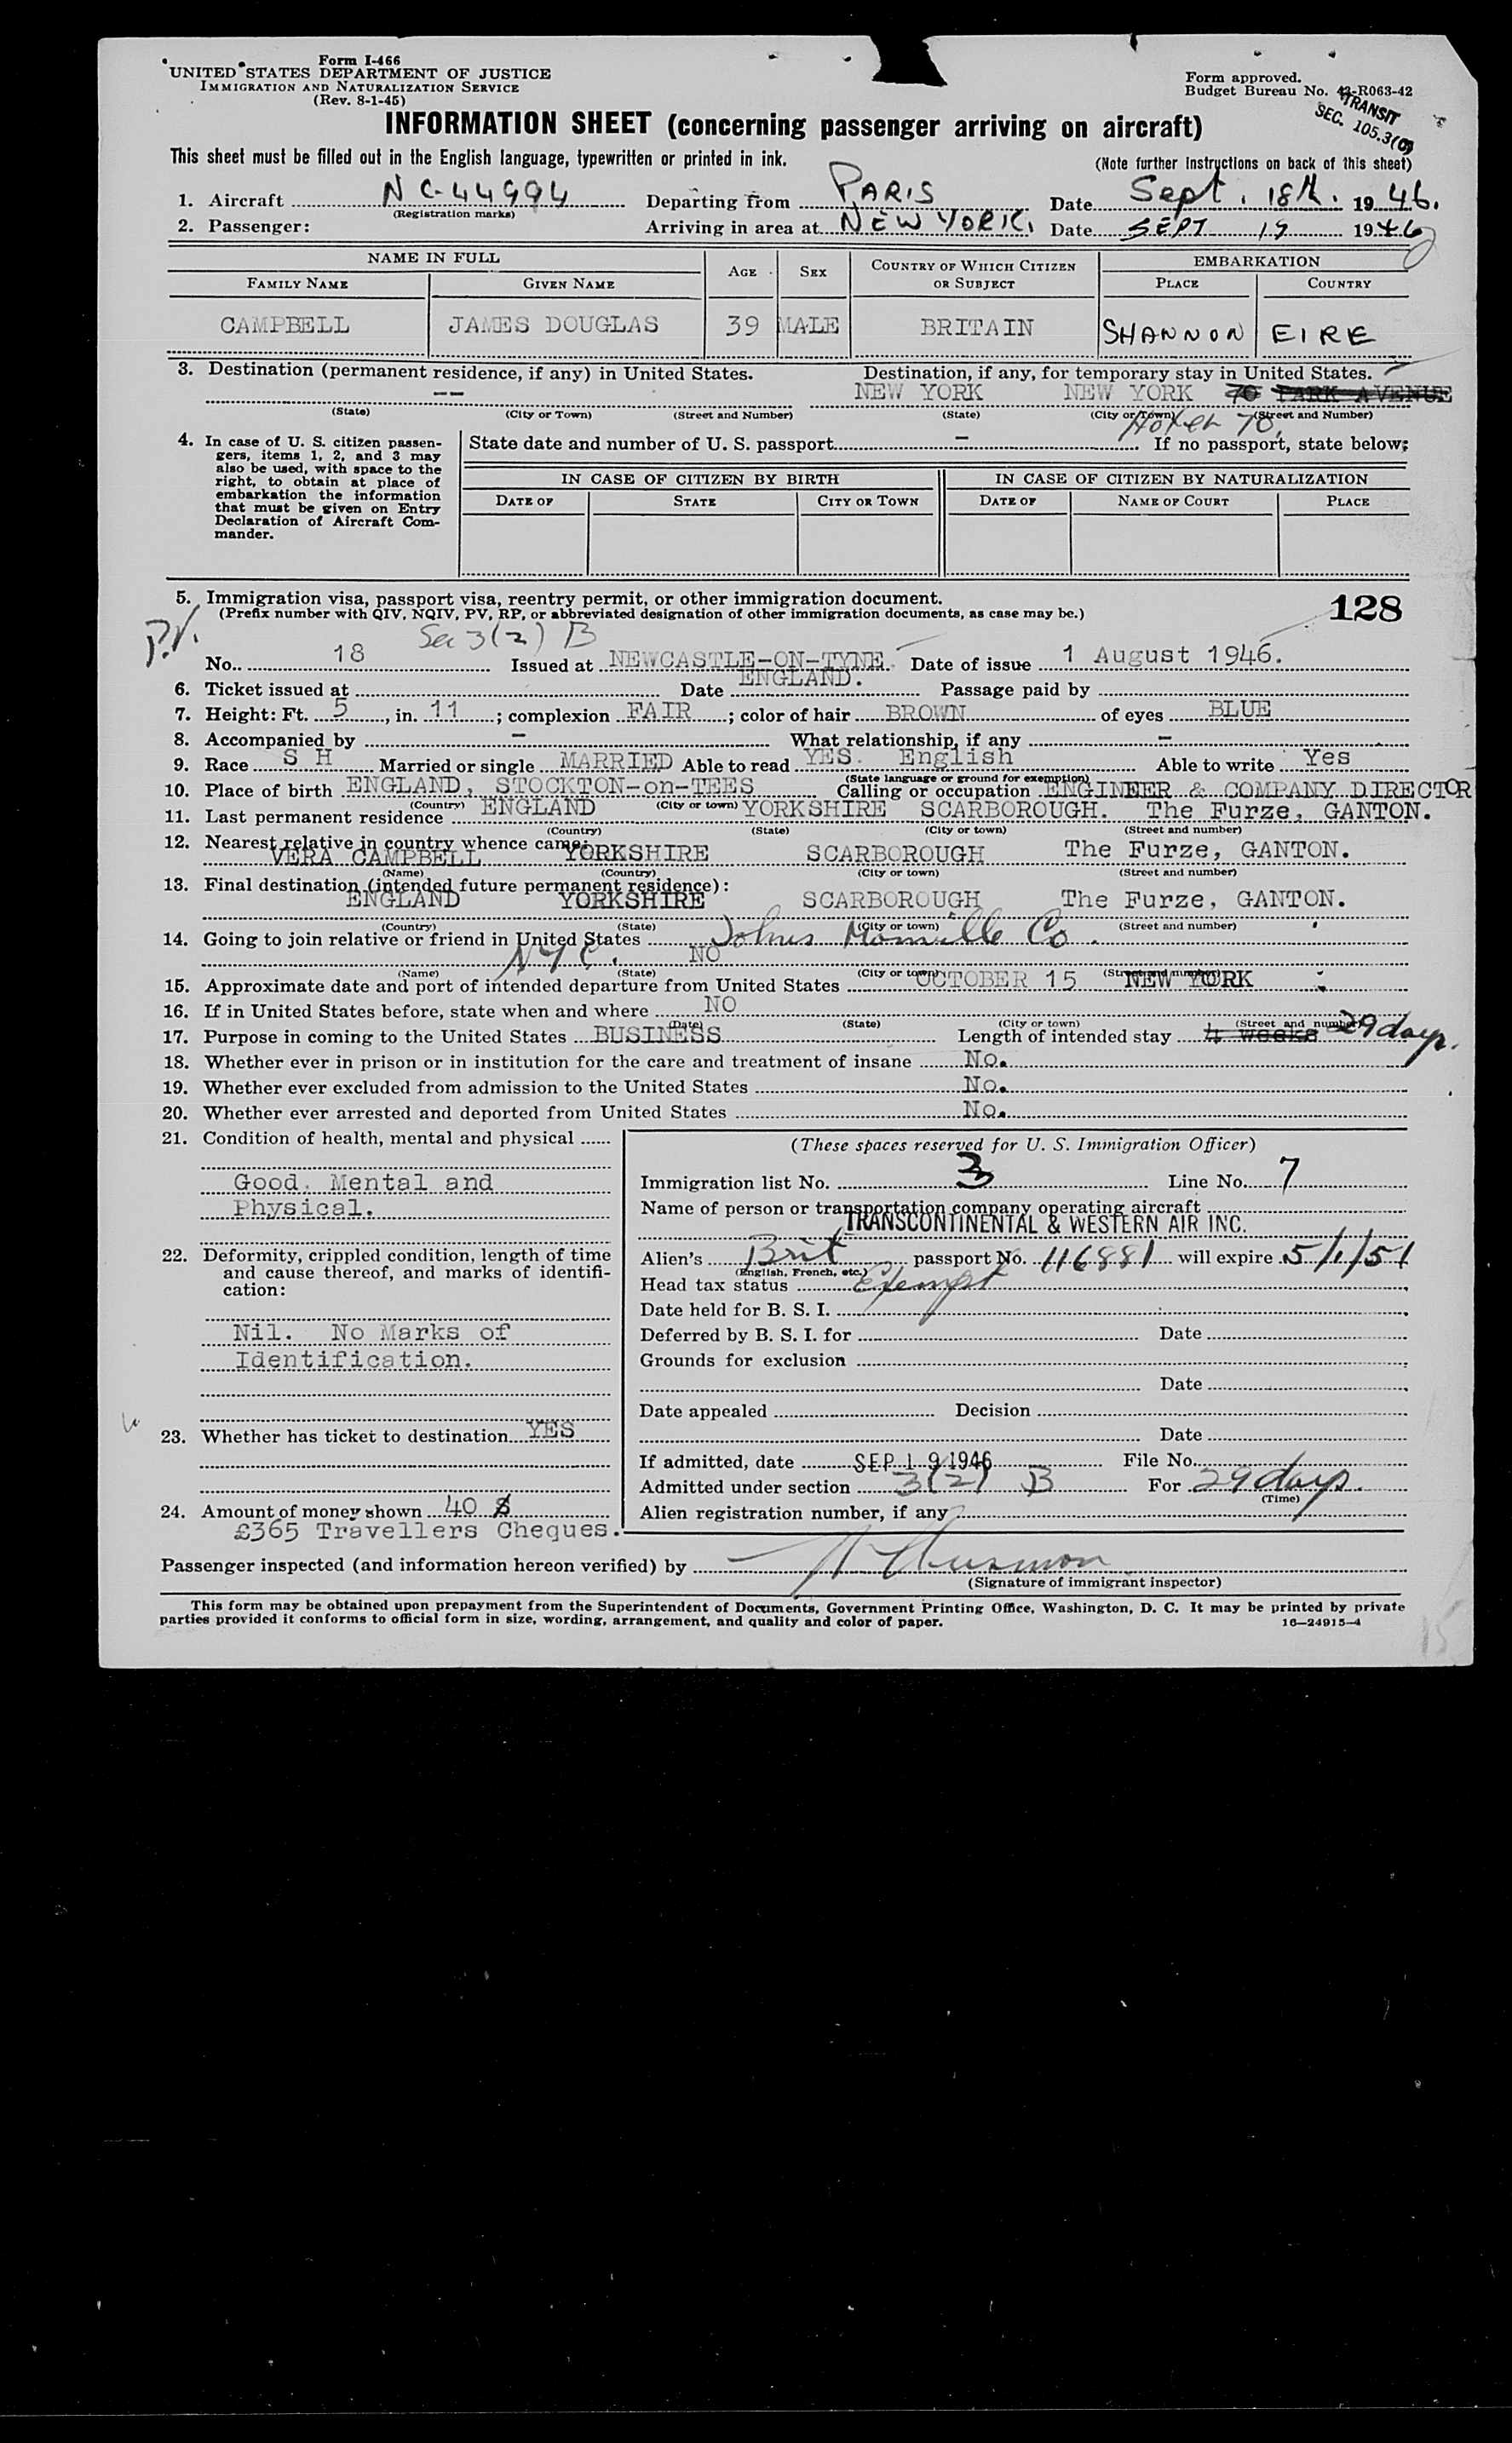 Form I-466
UNITED STATES DEPARTMENT OF JUSTICE
IMMIGRATION AND NATURALIZATION SERVICE
(Rev. 8-1-45)
Form approved.
Budget Bureau No. 43-R063-42
TRANSIT
SEC. 105.3(C)
INFORMATION SHEET (concerning passenger arriving on aircraft)
This sheet must be filled out in the English language, typewritten or printed in ink.
(Note further instructions on back of this sheet)
1. Aircraft NC-44994 Departing from PARIS Date Sept. 18th. 1946.
(Registration marks)
2. Passenger: Arriving in area at NEW YORK. Date SEPT 19 1946
NAME IN FULL AGE SEX COUNTRY OF WHICH CITIZEN OR SUBJECT EMBARKATION
FAMILY NAME GIVEN NAME PLACE COUNTRY
CAMPBELL JAMES DOUGLAS 39 MALE BRITAIN SHANNON EIRE
3. Destination (permanent residence, if any) in United States. Destination, if any, for temporary stay in United States.
-- NEW YORK NEW YORK 70 PARK AVENUE
(State) (City or Town) (Street and Number) (State) (City or Town) (Street and Number)
70
4. In case of U. S. citizen passengers, items 1, 2, and 3 may also be used, with space to the right, to obtain at place of embarkation the information that must be given on Entry Declaration of Aircraft Commander.
State date and number of U. S. passport - If no passport, state below:
IN CASE OF CITIZEN BY BIRTH IN CASE OF CITIZEN BY NATURALIZATION
DATE OF STATE CITY OR TOWN DATE OF NAME OF COURT PLACE
5. Immigration visa, passport visa, reentry permit, or other immigration document.
(Prefix number with QIV, NQIV, PV, RP, or abbreviated designation of other immigration documents, as case may be.)
128
P.V. Sec 3(2) B
No. 18 Issued at NEWCASTLE-ON-TYNE Date of issue 1 August 1946.
ENGLAND.
6. Ticket issued at Date Passage paid by
7. Height: Ft. 5, in. 11; complexion FAIR; color of hair BROWN of eyes BLUE
8. Accompanied by - What relationship, if any -
9. Race S H Married or single MARRIED Able to read YES. English Able to write Yes
(State language or ground for exemption)
10. Place of birth ENGLAND, STOCKTON-on-TEES Calling or occupation ENGINEER & COMPANY DIRECTOR
(Country) (City or town)
11. Last permanent residence ENGLAND YORKSHIRE SCARBOROUGH. The Furze, GANTON.
(Country) (State) (City or town) (Street and number)
12. Nearest relative in country whence came:
VERA CAMPBELL YORKSHIRE SCARBOROUGH The Furze, GANTON.
(Name) (Country) (City or town) (Street and number)
13. Final destination (intended future permanent residence):
ENGLAND YORKSHIRE SCARBOROUGH The Furze, GANTON.
(Country) (State) (City or town) (Street and number)
14. Going to join relative or friend in United States Johns Manville Co.
NYC. NO
(Name) (State) (City or town) (Street and number)
15. Approximate date and port of intended departure from United States OCTOBER 15 NEW YORK
16. If in United States before, state when and where NO
(Date) (State) (City or town) (Street and number)
17. Purpose in coming to the United States BUSINESS Length of intended stay 4 weeks 29 days.
18. Whether ever in prison or in institution for the care and treatment of insane No.
19. Whether ever excluded from admission to the United States No.
20. Whether ever arrested and deported from United States No.
21. Condition of health, mental and physical
Good. Mental and
Physical.
22. Deformity, crippled condition, length of time and cause thereof, and marks of identification:
Nil. No Marks of
Identification.
23. Whether has ticket to destination YES
24. Amount of money shown 40 $
£365 Travellers Cheques.
(These spaces reserved for U. S. Immigration Officer)
Immigration list No. 3 Line No. 7
Name of person or transportation company operating aircraft
TRANSCONTINENTAL & WESTERN AIR INC.
Alien's Brit passport No. 116881 will expire 5/1/51
(English, French, etc.)
Head tax status Exempt
Date held for B. S. I.
Deferred by B. S. I. for Date
Grounds for exclusion
Date
Date appealed Decision
Date
If admitted, date SEP 19 1946 File No.
Admitted under section 3(2) B For 29 days.
(Time)
Alien registration number, if any
Passenger inspected (and information hereon verified) by
(Signature of immigrant inspector)
This form may be obtained upon prepayment from the Superintendent of Documents, Government Printing Office, Washington, D. C. It may be printed by private
parties provided it conforms to official form in size, wording, arrangement, and quality and color of paper.
16—24915-4
15